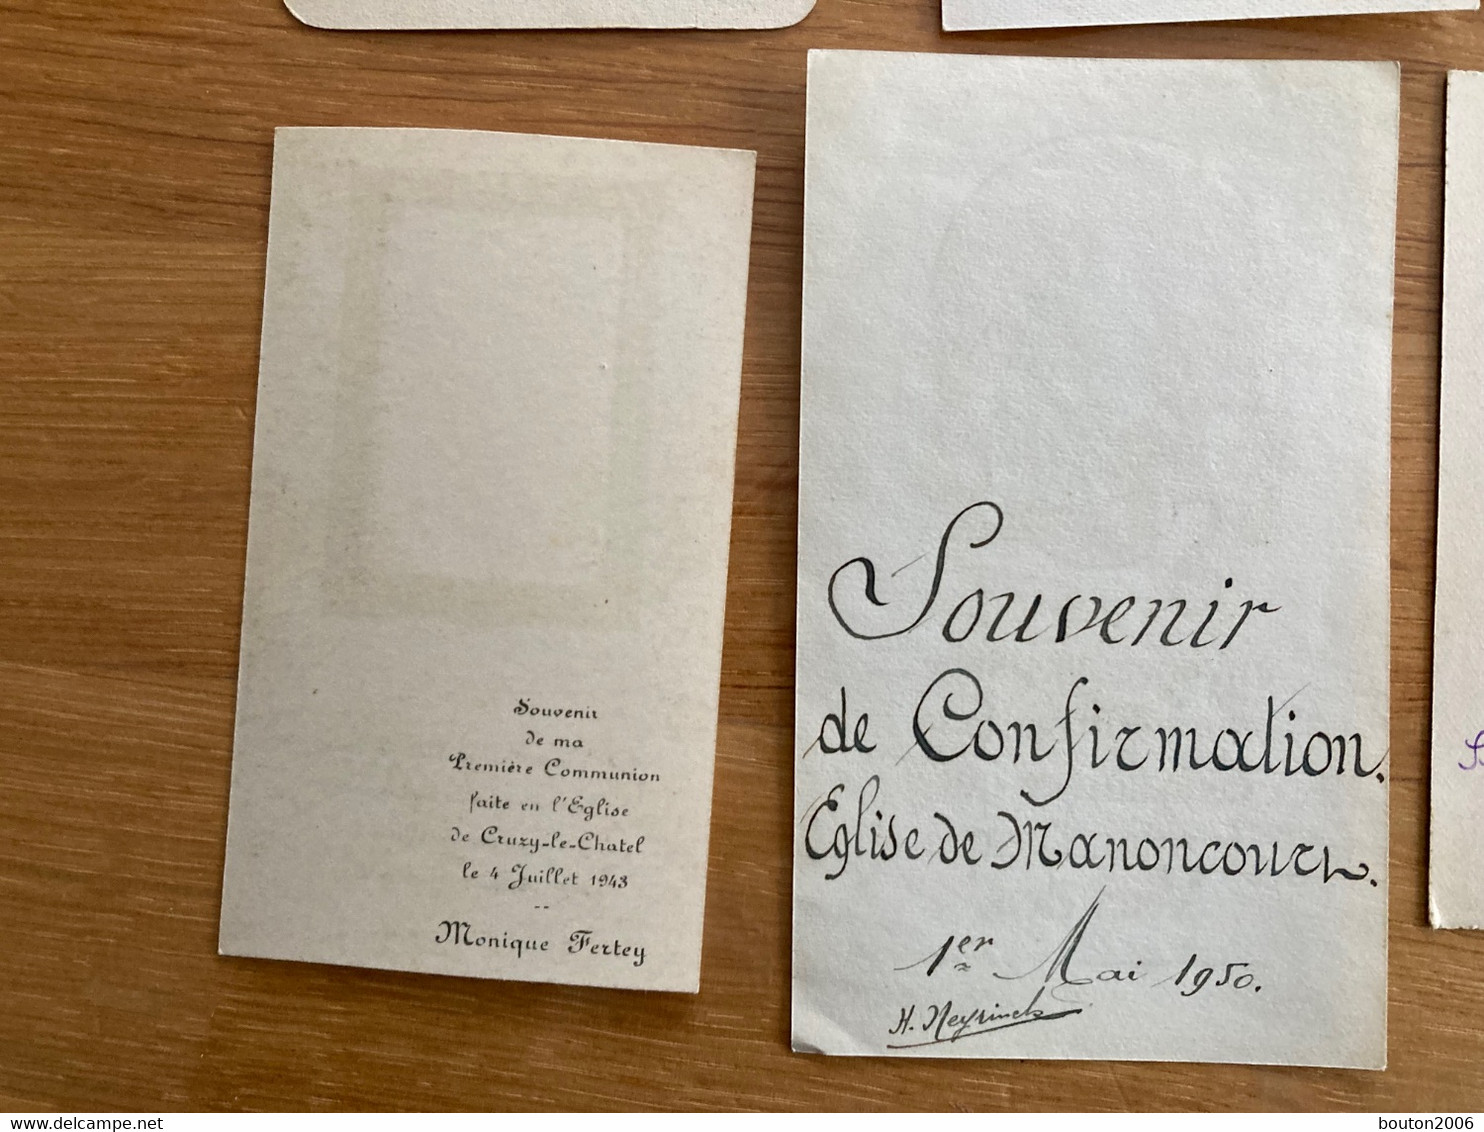 Souvenir
de ma
Première Communion
faite en l'Eglise
de Cruzy-le-Chatel
le 4 Juillet 1943
--
Monique Fertey
Souvenir
de Confirmation.
Eglise de Manoncourt.
1er Mai 1950.
H. Neyrinck
delcampe.net
bouton2006